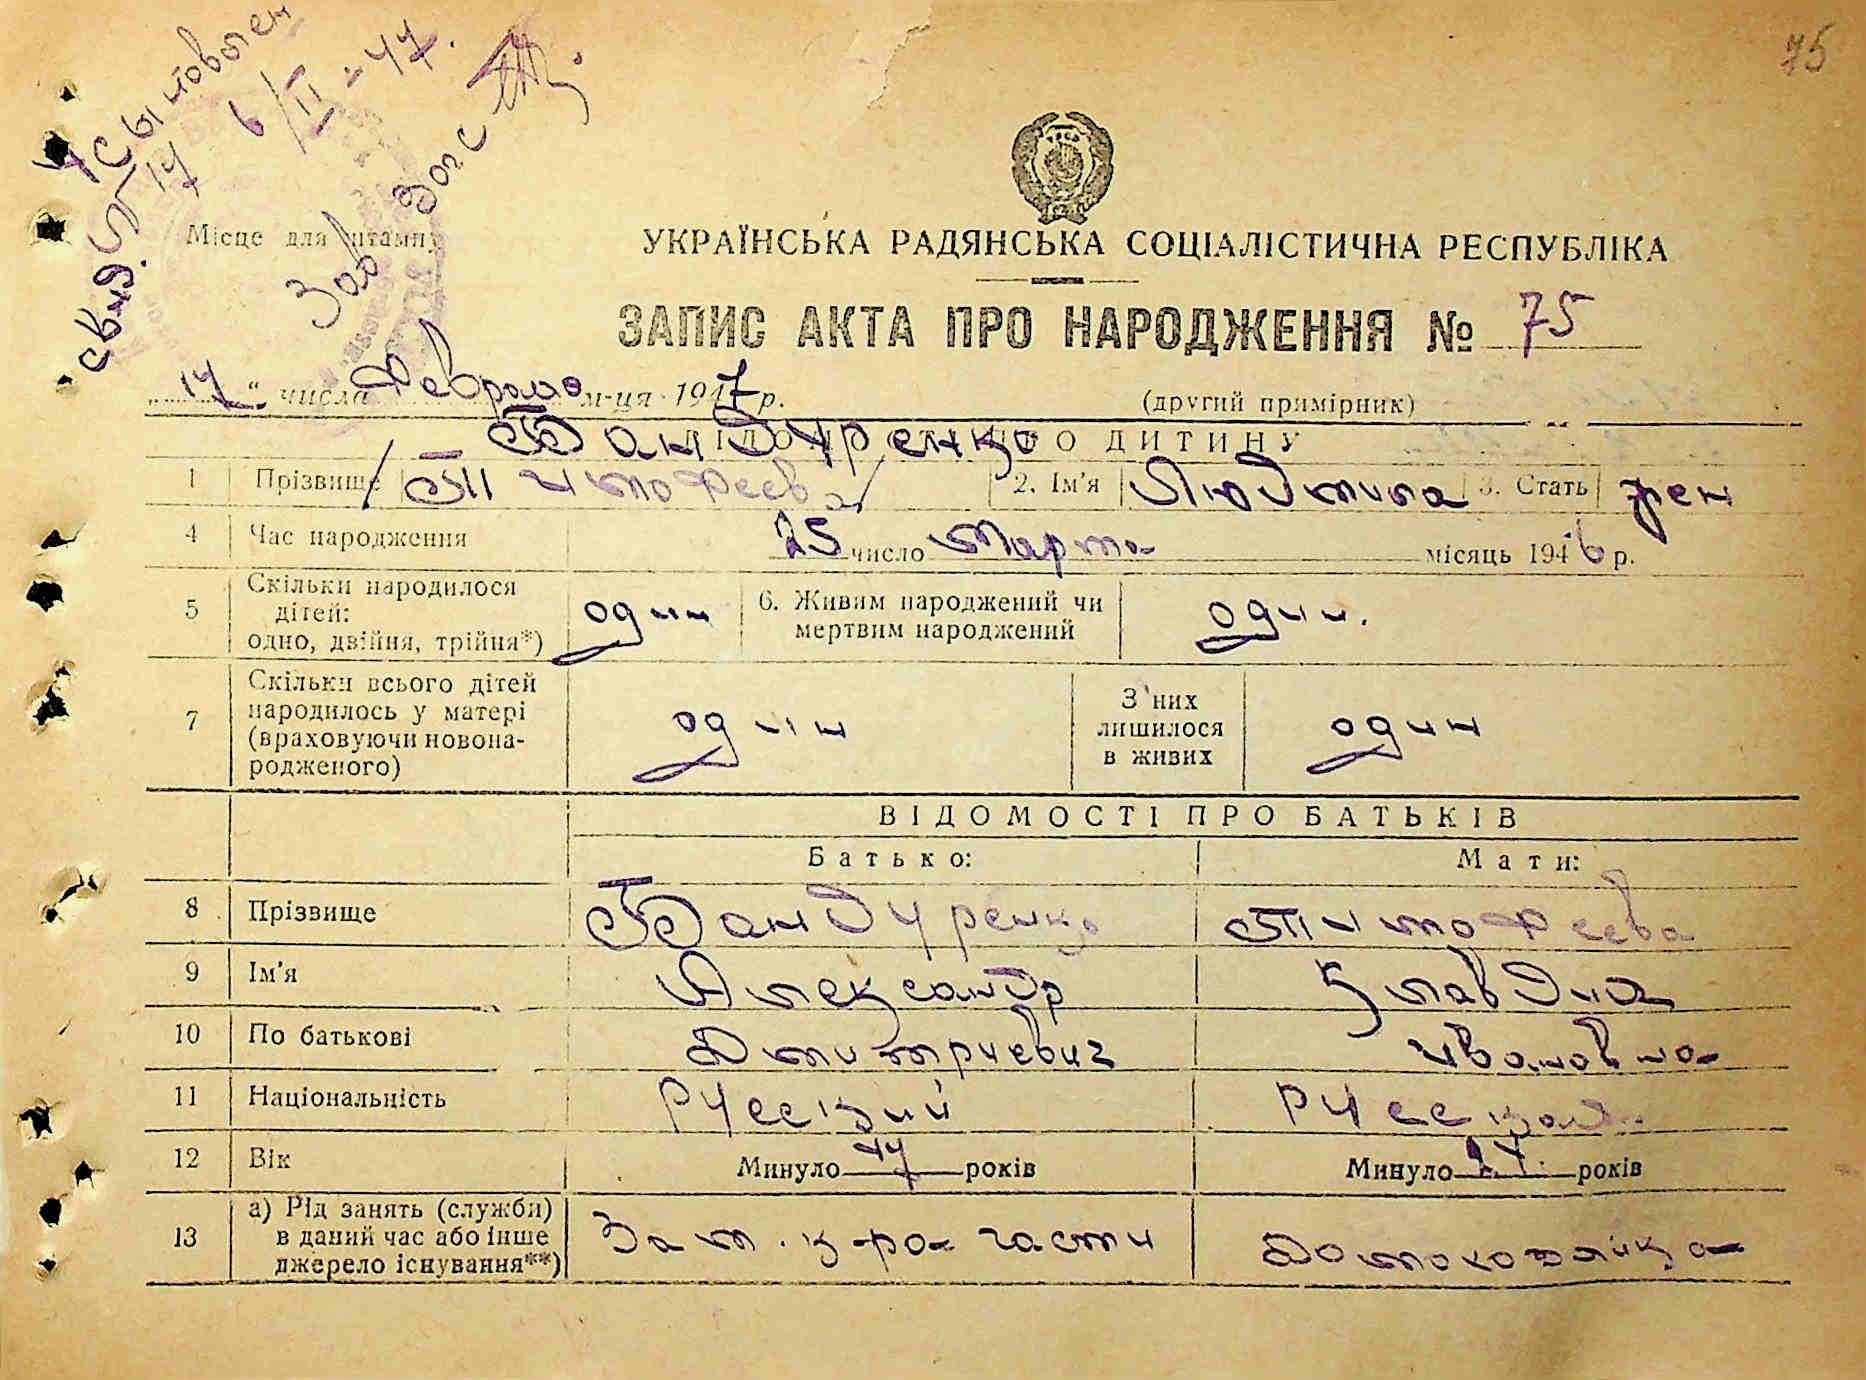 75
Усыновлен
свид. № 17 6/II-47.
Зав Загс
Місце для штампу
УКРАЇНСЬКА РАДЯНСЬКА СОЦІАЛІСТИЧНА РЕСПУБЛІКА
ЗАПИС АКТА ПРО НАРОДЖЕННЯ № 75
„17“ числа Февраля м-ця 1947 р. (другий примірник)
ВІДОМОСТІ ПРО ДИТИНУ
Бандуренко
1 Прізвище /Тимофеева/ 2. Ім'я Людмила 3. Стать жен
4 Час народження 25 число Марта місяць 1946 р.
5 Скільки народилося дітей: одно, двійня, трійня*) один 6. Живим народжений чи мертвим народжений один.
7 Скільки всього дітей народилось у матері (враховуючи новонародженого) один З них лишилося в живих один
ВІДОМОСТІ ПРО БАТЬКІВ
Батько: Мати:
8 Прізвище Бандуренко Тимофеева
9 Ім'я Александр Клавдия
10 По батькові Дмитриевич Ивановна
11 Національність Русский Русская
12 Вік Минуло років Минуло років
13 а) Рід занять (служби) в даний час або інше джерело існування**) Зам. к-ра части Домохозяйка